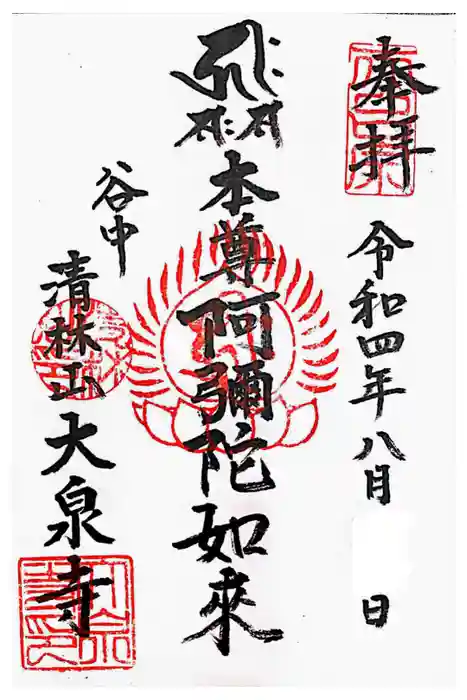 奉拝
令和四年八月 日
本尊阿彌陀如來
谷中
清林山大泉寺